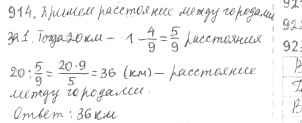 914. Примем расстояние между городами
за 1. Тогда 20 км - 1 - 4/9 = 5/9 расстояния
20 : 5/9 = 20·9/5 = 36 (км) - расстояние
между городами.
Ответ: 36 км
92
92
92